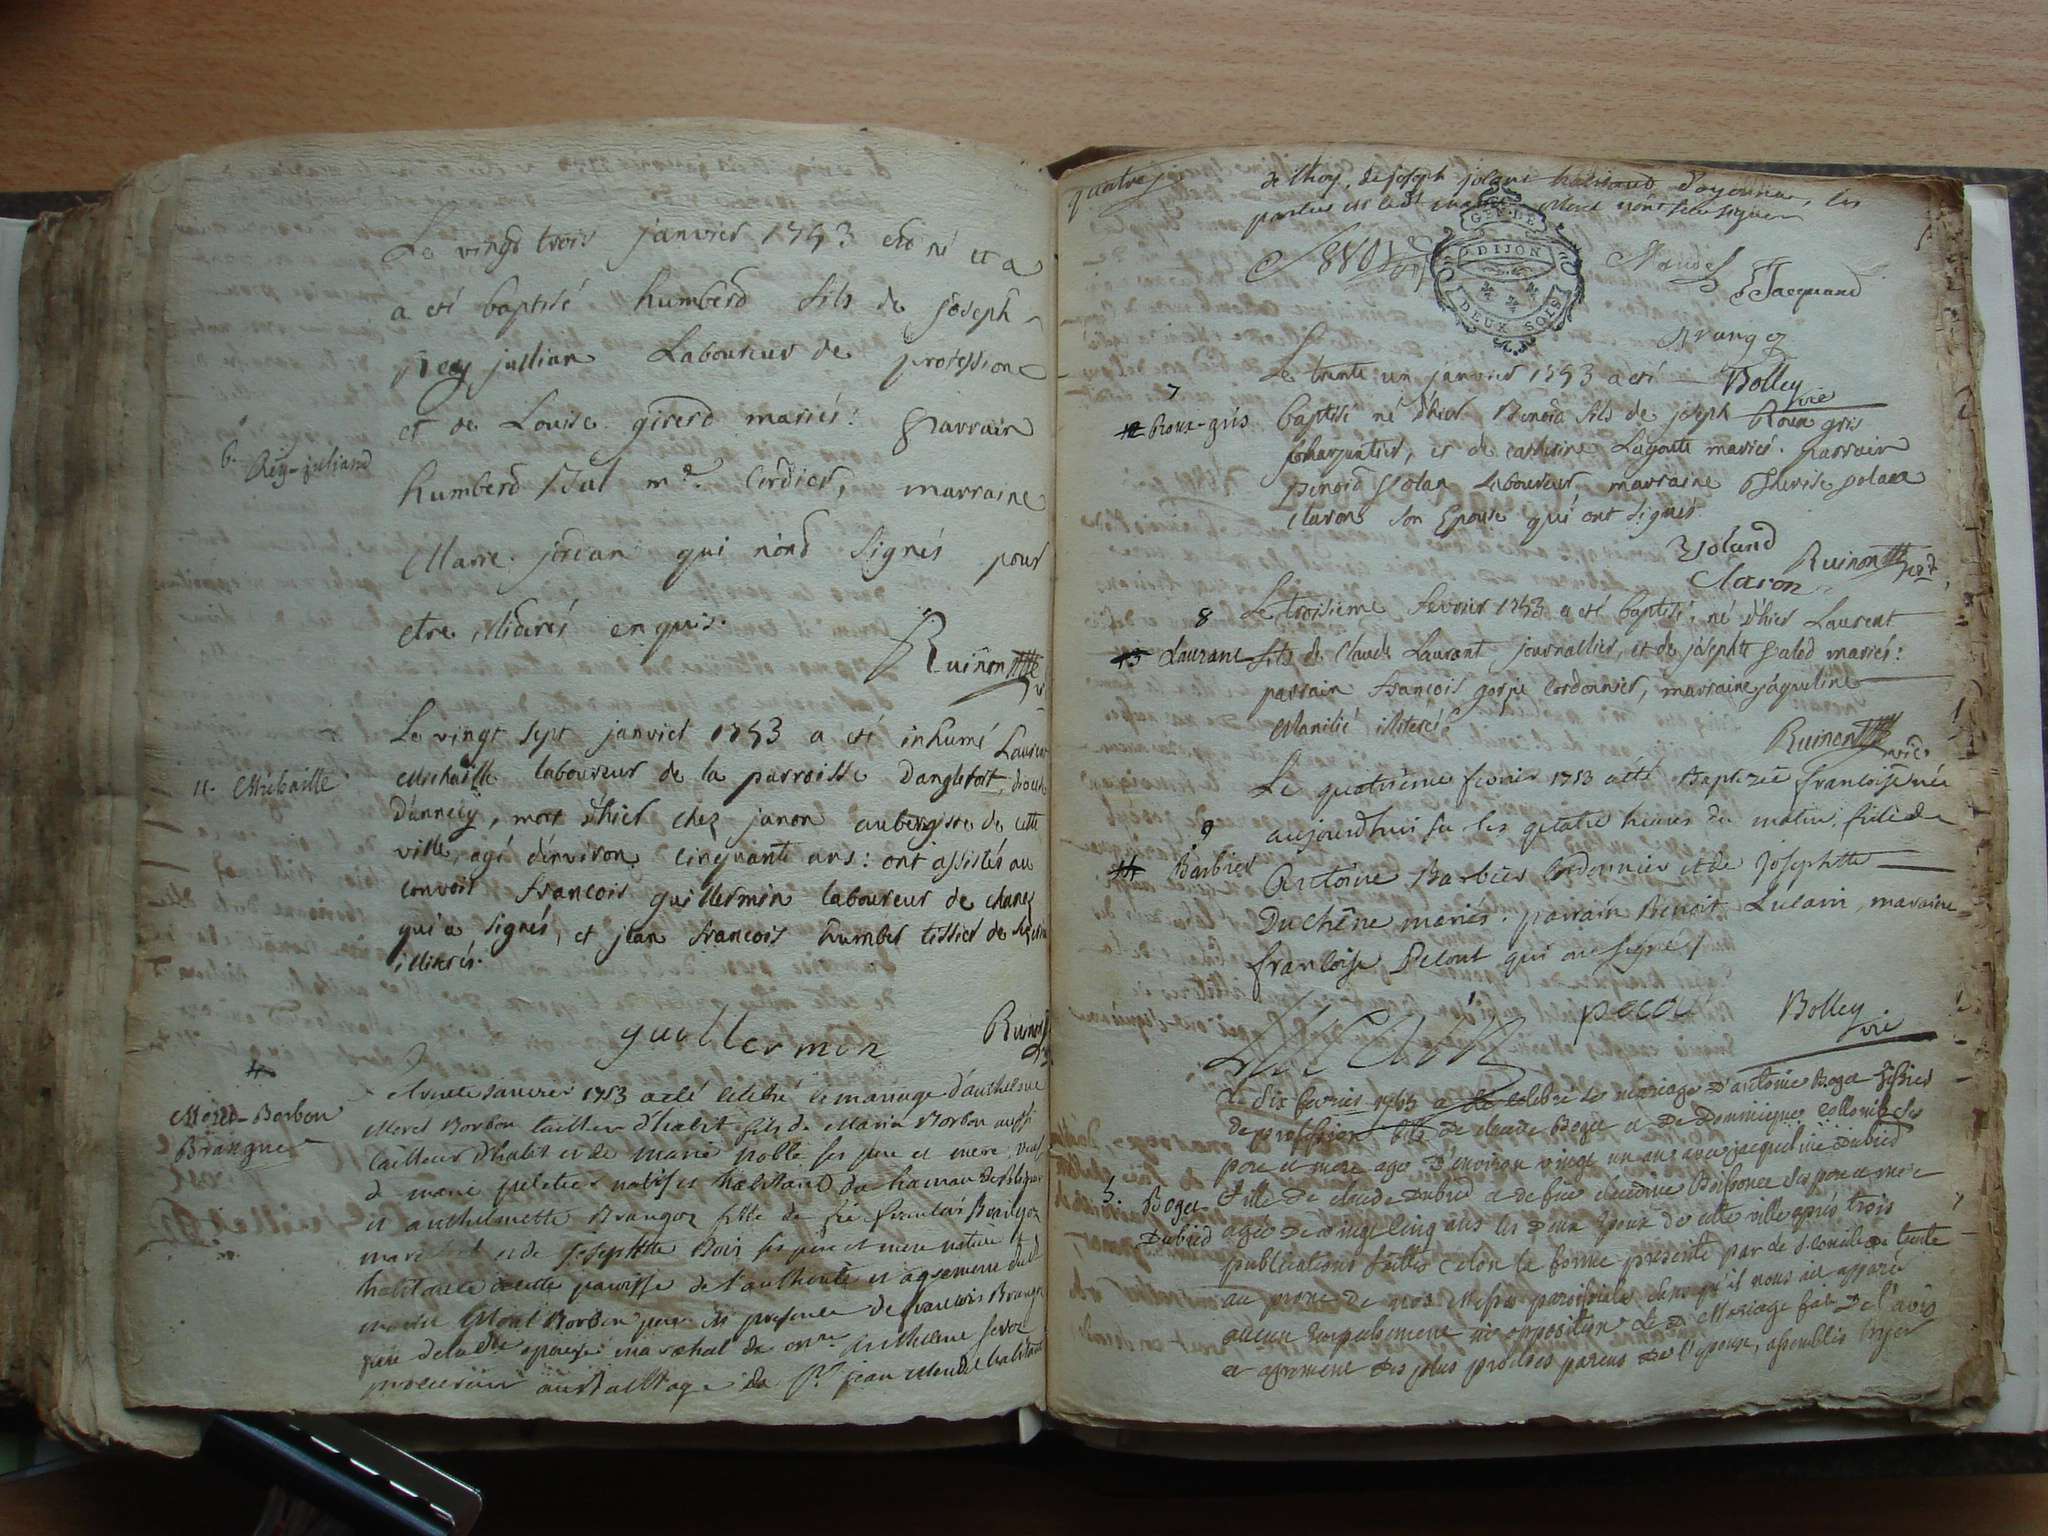 Le vingt trois janvier 1753 est né et a
a eté baptisé humberd fils de joseph
Rey jullian Laboureur de profession
et de Louise girerd mariés: parrain
6. Rey-juliand
humberd Sut me. Cordier, marraine
Marie jordan qui n'ond signés pour
etre illiterés enquis.
Ruinon
Le vingt sept janvier 1753 a eté inhumé Laurent
11. Michaille
Michaille laboureur de la parroisse D'anglefort,
D'annecy, mort d'hier chez janon aubergiste de cette
ville, agé d'environ cinquante ans: ont assistés au
convoit francois guillermin laboureur de chanez
qui a signés, et jean francois humber tissier de
illiterés.
guillermin Ruinon
trente Janvier 1753 a eté celebré le mariage d'anthelme
Moret-Borbon
Brangue
Moret Borbon tailleur d'habit fils de Marin Borbon aussi
tailleur d'habit et de marie noblé ses pere et mere, veuf
de marie natif et habitant du hameau de
et anthelmette Brangoz fille de feu Brangoz
marechal et de josephte Bois ses père et mere native et
habitante de cette parroisse de l'authorité et agrement dudt
marin Moret Borbon pere en presence de francois Brangoz
frere de ladte epouse marechal de Anthelme
procureur au bailliage de Sr jean habitant
quatre
de thoy, de joseph jolans d'oyonna, les
parties et ledt n'ont seu signer
G'EN. DE
DIJON
DEUX SOLS
Jacquand
Brangoz
Bolley
vic
Le trente un janvier 1753 a eté
7
12 Roux-gris
baptisé né d'hier Benoid fils de joseph Roux gris
charpantier, et de catherine Lagoute mariés. parrain
Benoid jolan Laboureur, marraine
Claron son Epouse qui ont signés.
Yoland
Claron Ruinon
8
Le troisième fevrier 1753 a eté baptisé, né d'hier Laurent
13 Laurant
fils de Claude Laurant journallier, et de josephte galed mariés:
parrain francois gorju cordonnier, marraine jâqueline
illiterés.
Ruinon
vic
Le quatriéme fevrier 1753 a été Baptizée francoise née
9
aujourdhui sur les quatre heures du matin, fille de
14 Barbier
Antoine Barbier Cordonnier et de Josephtte
Duchêne mariés. parrain Benoit Lucain, maraine
francoise Pecout qui ont signé
Lucain pecou Bolley
vic
Le dix fevrier 1753 a eté celebré le mariage d'antoine Boge
de profession fils de claude Boge et de Dominique Collombe ses
pere et mere agé d'environ vingt un ans avec jacqueline Dubied
5. Boge
Dubied
fille de claude Dubied et de feue claudine ses pere et mere
agée de vingt cinq ans les deux Epoux de cette ville après trois
publications faittes selon la forme presente par le St Concile de trente
au prone de nos Messes paroissiales sans qu'il nous ait apparu
aucun Empechement ni opposition Led Mariage fait De l'avis
et agrement des plus proches parens de l'epouse, assemblés